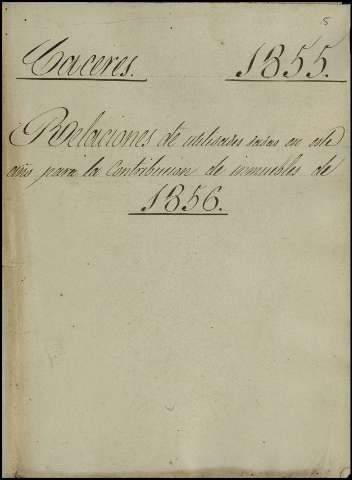 5
Caceres. 1855.
Relaciones de utilidades dadas en este
año para la Contribucion de inmuebles de
1856.